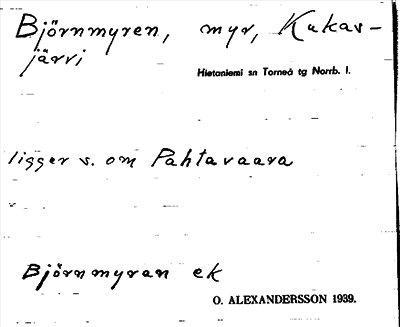 Björnmyren, myr, Kukas-
järvi
Hietaniemi sn Torneå tg Norrb. l.
ligger s. om Pahtavaara
Björnmyran ek
O. ALEXANDERSSON 1939.